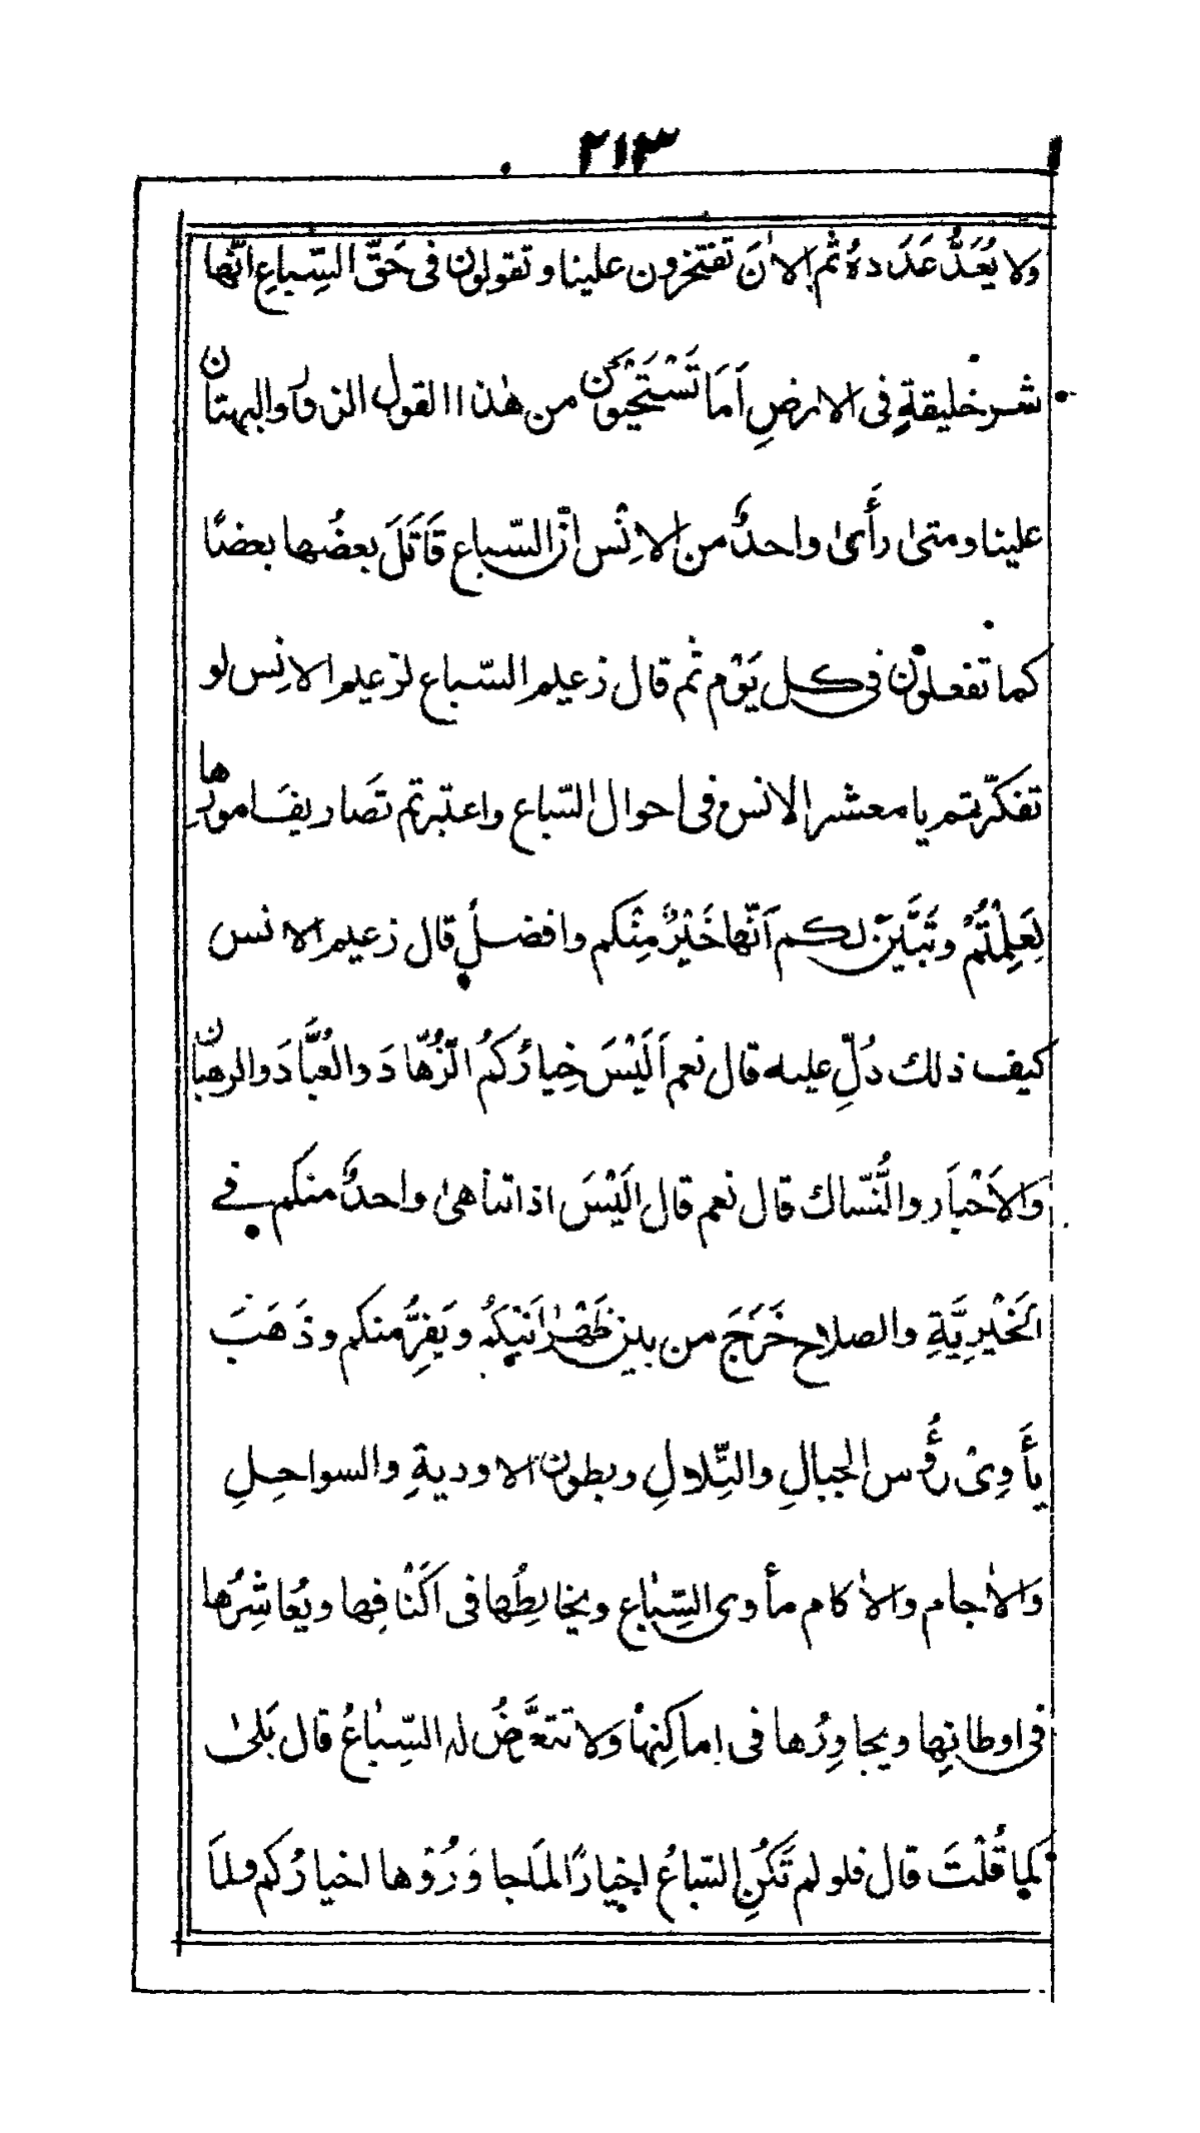 ٢١٣
ولا يُعَدُّ عَدَدهُ ثم الاٰنَ تفتخرون علينا وتقولون فى حَقّ السِّباعِ انّها
شر خليقةٍ فى الارضِ اَمَا تَسْتَحْيُوْنَ من هٰذا القول الزور والبهتان
علينا ومتىٰ رأَىٰ واحدٌ من الانْس انّ السّباع قَاتَلَ بعضُها بعضًا
كما تفعلوْن فى كل يَوْم ثم قال زعيم السّباع لزعيم الانِس لو
تفكّرتم يا معشر الانس فى احوال السّباع واعتبرتم تصَاريفَ امورها
لَعِلمْتُمْ وتَبَّيَنَ لكم اَنّها خَيْرٌ مِنْكم وافضلُ قال زعيم الانس
كيف ذلك دُلِّ عليه قال نعم اَلَيْسَ خِيارُكمُ الزُّهّادَ والعُبَّادَ والرهبان
وَالاَحْبَار والنُّسّاك قال نعم قال اليْسَ اذا تناهىٰ واحدٌ منكم فے
الخَيْرِيَّةِ والصلاح خَرَجَ من بين ظَهْرانَيْكُم ويَفِرُّ منكم وذَهَبَ
يأَوِىْ رؤُس الجبالِ والتِّلاولِ وبطون الاوديةِ والسواحِلِ
وَالاٰجام والاٰكام مأوى السِّبٰاع ويخالِطُها فى اَكْنَافِها ويُعاشِرُها
فى اوطانِها ويجاوِرُها فى اماكِنِهاْ وَلا تتعَّرضُ له السِّبٰاعُ قال بَلىٰ
كما قُلْتَ قال فلو لم تَكُنِ السّباعُ اخيارًا لمَا جاوَرُوْها اخيارُكم ولمَا